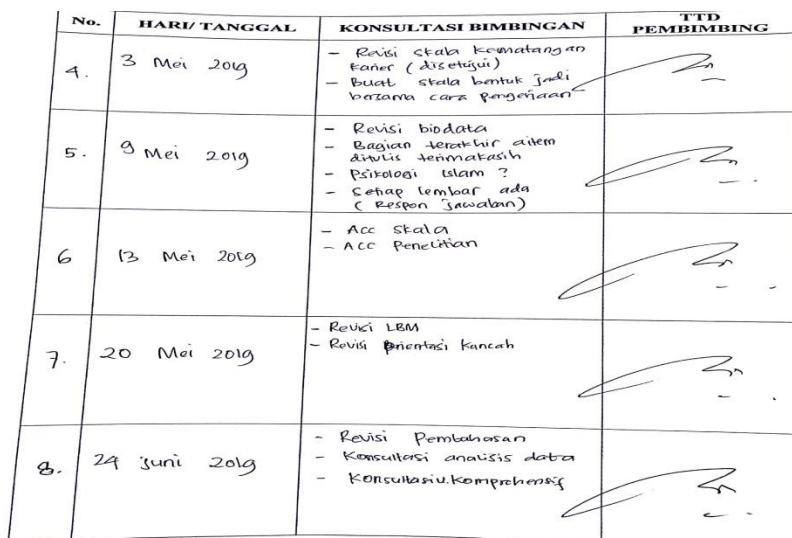 No. HARI/ TANGGAL KONSULTASI BIMBINGAN TTD PEMBIMBING
4. 3 Mei 2019
- Revisi skala kematangan
karier (disetujui)
- Buat skala bentuk jadi
bersama cara pengerjaan
5. 9 Mei 2019
- Revisi biodata
- Bagian terakhir aitem
ditulis terimakasih
- Psikologi Islam ?
- Setiap lembar ada
( Respon Jawaban)
6 13 Mei 2019
- Acc skala
- Acc Penelitian
7. 20 Mei 2019
- Revisi LBM
- Revisi orientasi kancah
8. 24 Juni 2019
- Revisi Pembahasan
- Konsultasi analisis data
- Konsultasi u.Komprehensif